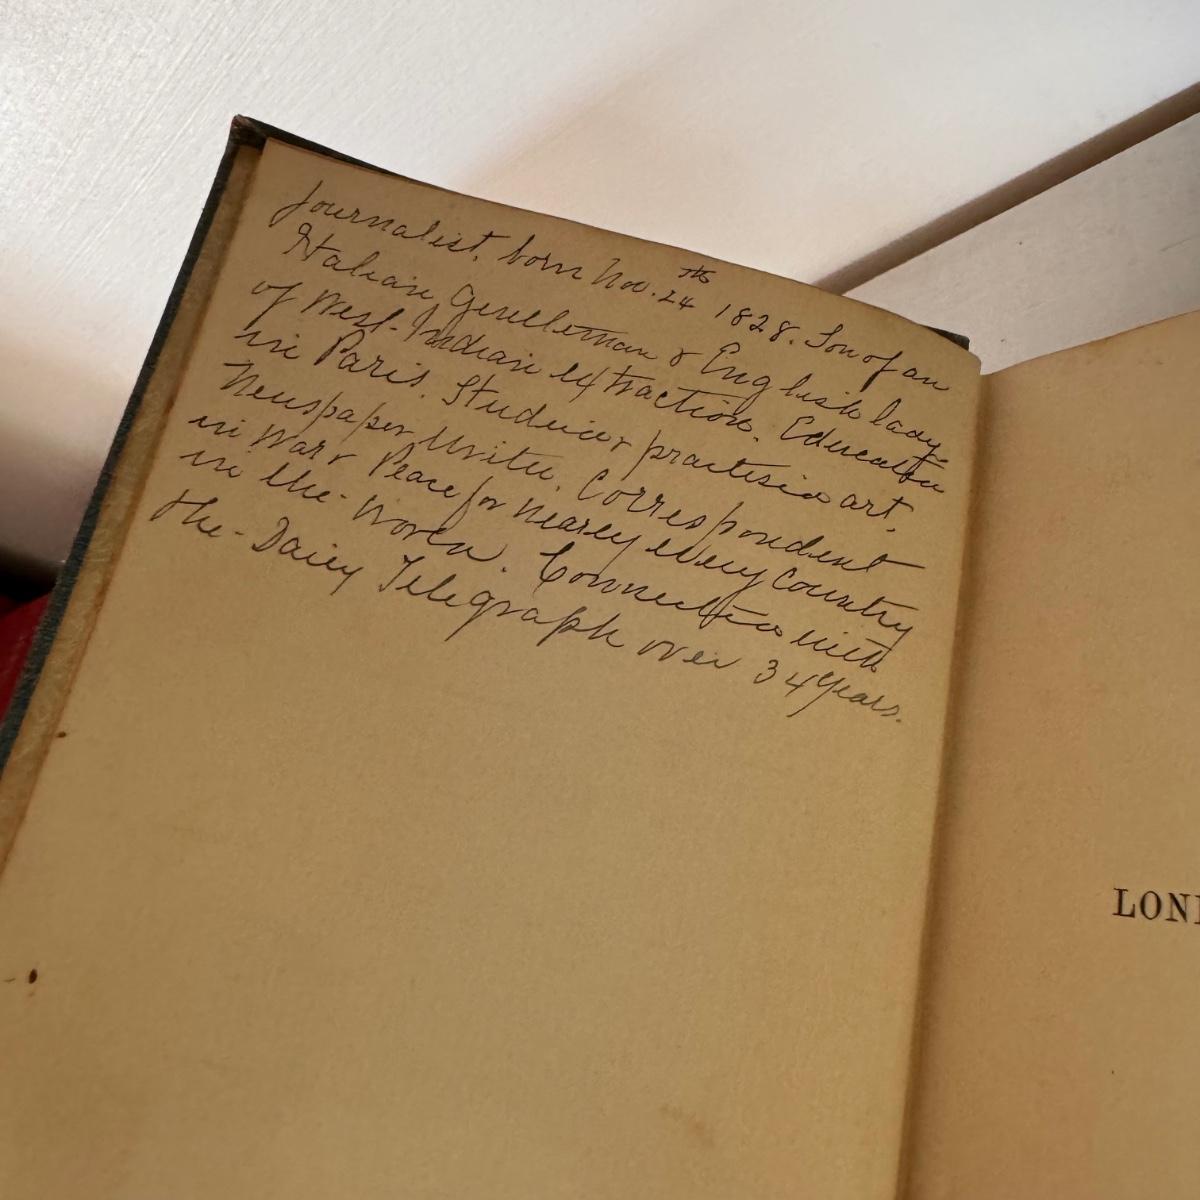 Journalist, born Nov. 24th 1828. Son of an
Italian Gentleman & English lady
of West-Indian extraction. Educated
in Paris. Studied & practised art.
Newspaper Writer. Correspondent
in War & Peace for nearly every country
in the World. Connected with
the Daily Telegraph over 34 years.
LON